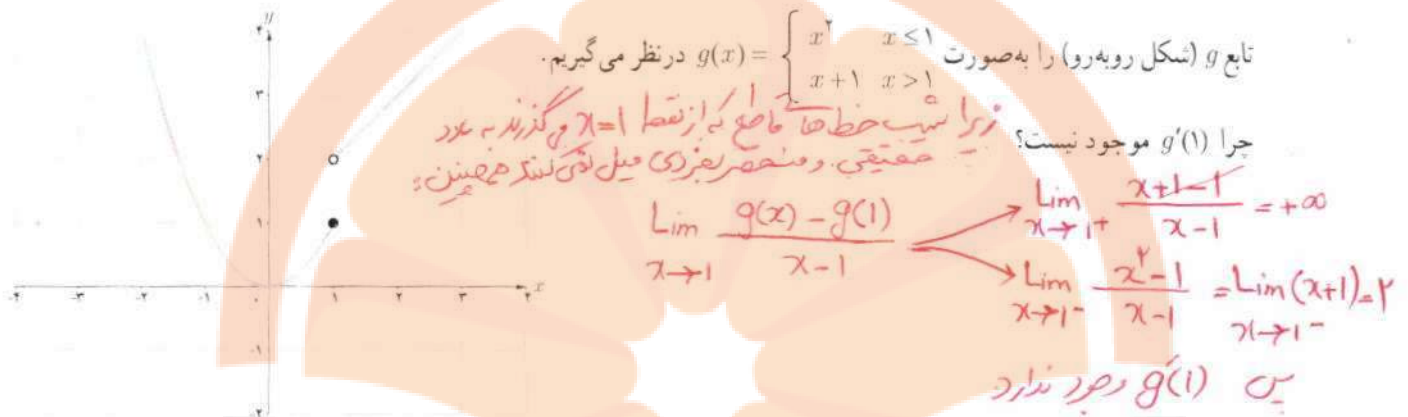 تابع g (شکل روبه‌رو) را به‌صورت g(x) = { x^۲ x ≤ ۱ , x+۱ x > ۱ درنظر می‌گیریم.
چرا g′(۱) موجود نیست؟
زیرا شیب خط‌های قاطع که از نقطهٔ x=1 می‌گذرند به عدد
حقیقی و منحصربفردی میل نمی‌کنند همچنین:
Lim x→1 (g(x) - g(1))/(x-1)
Lim x→1+ (x+1-1)/(x-1) = +∞
Lim x→1- (x^۲-1)/(x-1) = Lim x→1- (x+1) = ۲
پس g′(1) وجود ندارد
y
۴
۳
۲
۱
-۴ -۳ -۲ -۱ ۰ ۱ ۲ ۳ ۴ x
-۱
-۲